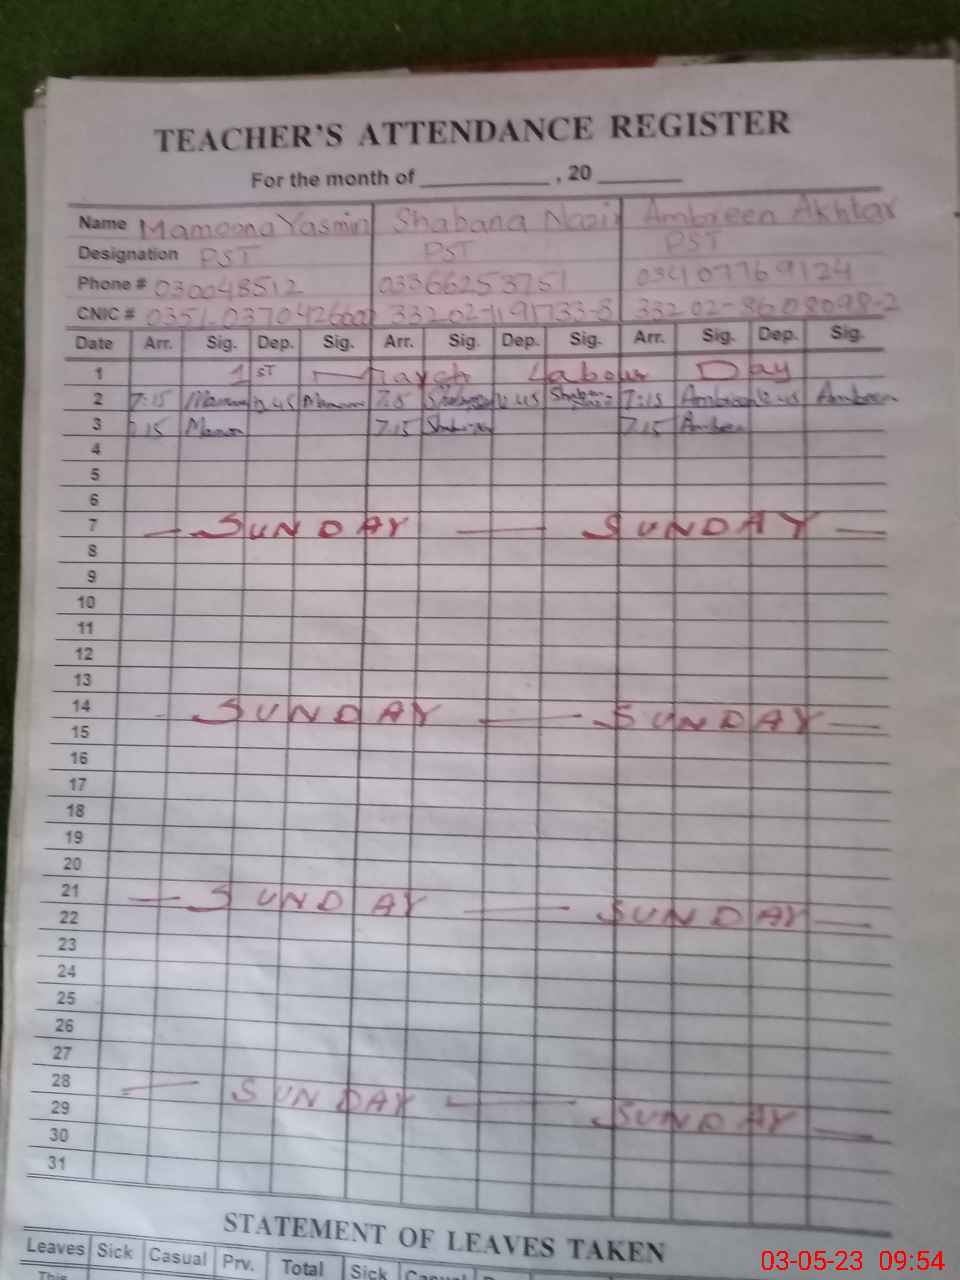 TEACHER'S ATTENDANCE REGISTER
For the month of __________, 20 ______
Name Mamoona Yasmin Shabana Nazir Ambreen Akhtar
Designation PST PST PST
Phone # 030048512 03366253751 034107769124
CNIC # 33202-1191733-8 33202-8608098-2
Date Arr. Sig. Dep. Sig. Arr. Sig. Dep. Sig. Arr. Sig. Dep. Sig.
1 1ST Labour Day
2 7:15 12:45 7:15 12:45 7:15 Ambreen 12:45 Ambreen
3 7:15 7:15 7:15 Ambreen
4
5
6
7 SUNDAY SUNDAY
8
9
10
11
12
13
14 SUNDAY SUNDAY
15
16
17
18
19
20
21 SUNDAY SUNDAY
22
23
24
25
26
27
28 SUNDAY SUNDAY
29
30
31
STATEMENT OF LEAVES TAKEN
Leaves Sick Casual Prv. Total Sick Casual
This
03-05-23 09:54